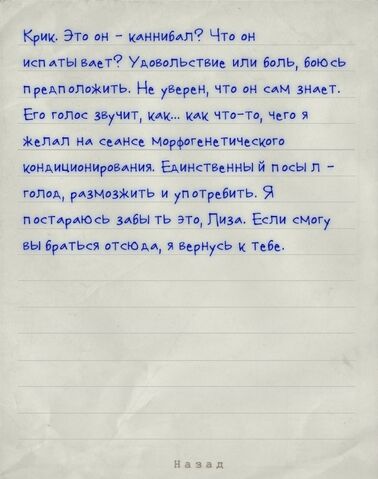 Крик. Это он - каннибал? Что он
испытывает? Удовольствие или боль, боюсь
предположить. Не уверен, что он сам знает.
Его голос звучит, как... как что-то, чего я
желал на сеансе морфогенетического
кондиционирования. Единственный посыл -
голод, размозжить и употребить. Я
постараюсь забыть это, Лиза. Если смогу
выбраться отсюда, я вернусь к тебе.
Назад